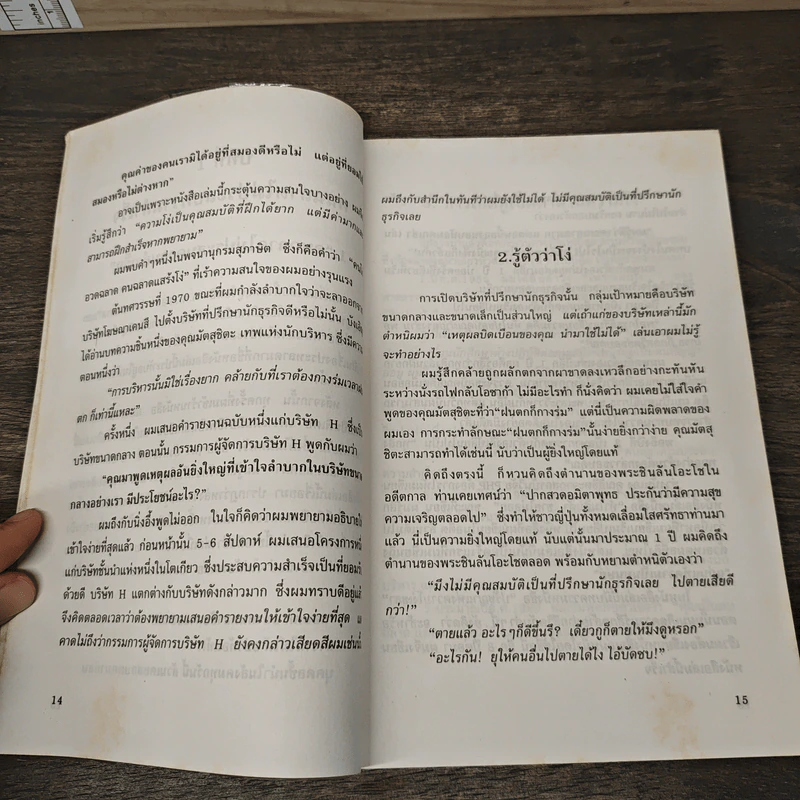 inches
1
คุณค่าของคนเรามิได้อยู่ที่สมองดีหรือไม่ แต่อยู่ที่ยอมใช้
สมองหรือไม่ต่างหาก”
อาจเป็นเพราะหนังสือเล่มนี้กระตุ้นความสนใจบางอย่าง
เริ่มรู้สึกว่า “ความโง่เป็นคุณสมบัติที่ฝึกได้ยาก แต่มีค่ามาก
สามารถฝึกสำเร็จหากพยายาม”
ผมพบคำๆหนึ่งในพจนานุกรมสุภาษิต ซึ่งก็คือคำว่า
อวดฉลาด คนฉลาดแสร้งโง่” ที่เร้าความสนใจของผมอย่างรุนแรง
ต้นทศวรรษที่ 1970 ขณะที่ผมกำลังลำบากใจว่าจะลาออก
บริษัทโฆษณาเคนสึ ไปตั้งบริษัทที่ปรึกษานักธุรกิจดีหรือไม่นั้น
ได้อ่านบทความชิ้นหนึ่งของคุณมัตสุชิตะ เทพแห่งนักบริหาร ซึ่งมี
ตอนหนึ่งว่า
“การบริหารนั้นมิใช่เรื่องยาก คล้ายกับที่เราต้องกางร่มเวลา
ตก ก็เท่านี้แหละ”
ครั้งหนึ่ง ผมเสนอคำรายงานฉบับหนึ่งแก่บริษัท H ซึ่ง
บริษัทขนาดกลาง ตอนนั้น กรรมการผู้จัดการบริษัท H พูดกับผมว่า
“คุณมาพูดเหตุผลอันยิ่งใหญ่ที่เข้าใจลำบากในบริษัท
กลางอย่างเรา มีประโยชน์อะไร?”
ผมถึงกับนิ่งอึ้งพูดไม่ออก ในใจก็คิดว่าผมพยายามอธิบาย
เข้าใจง่ายที่สุดแล้ว ก่อนหน้านั้น 5-6 สัปดาห์ ผมเสนอโครงการ
แก่บริษัทชั้นนำแห่งหนึ่งในโตเกียว ซึ่งประสบความสำเร็จเป็นที่ยอม
ด้วยดี บริษัท H แตกต่างกับบริษัทดังกล่าวมาก ซึ่งผมทราบดีอยู่
จึงคิดตลอดเวลาว่าต้องพยายามเสนอคำรายงานให้เข้าใจง่ายที่สุด
คาดไม่ถึงว่ากรรมการผู้จัดการบริษัท H ยังคงกล่าวเสียดสีผมเช่นนี้
14
ผมถึงกับสำนึกในทันทีว่าผมยังใช้ไม่ได้ ไม่มีคุณสมบัติเป็นที่ปรึกษานัก
ธุรกิจเลย
2.รู้ตัวว่าโง่
การเปิดบริษัทที่ปรึกษานักธุรกิจนั้น กลุ่มเป้าหมายคือบริษัท
ขนาดกลางและขนาดเล็กเป็นส่วนใหญ่ แต่เถ้าแก่ของบริษัทเหล่านี้มัก
ตำหนิผมว่า “เหตุผลบิดเบือนของคุณ นำมาใช้ไม่ได้” เล่นเอาผมไม่รู้
จะทำอย่างไร
ผมรู้สึกคล้ายถูกผลักตกจากผาขาดลงเหวลึกอย่างกะทันหัน
ระหว่างนั่งรถไฟกลับโอซาก้า ไม่มีอะไรทำ ก็นั่งคิดว่า ผมเคยไม่ใส่ใจคำ
พูดของคุณมัตสุชิตะที่ว่า“ฝนตกก็กางร่ม” แต่นี่เป็นความผิดพลาดของ
ผมเอง การกระทำลักษณะ“ฝนตกก็กางร่ม”นั้นง่ายยิ่งกว่าง่าย คุณมัตสุ
ชิตะสามารถทำได้เช่นนี้ นับว่าเป็นผู้ยิ่งใหญ่โดยแท้
คิดถึงตรงนี้ ก็หวนคิดถึงตำนานของพระชินลันโอะโชใน
อดีตกาล ท่านเคยเทศน์ว่า “ปากสวดอมิตาพุทธ ประกันว่ามีความสุข
ความเจริญตลอดไป” ซึ่งทำให้ชาวญี่ปุ่นทั้งหมดเลื่อมใสศรัทธาท่านมา
แล้ว นี่เป็นความยิ่งใหญ่โดยแท้ นับแต่นั้นมาประมาณ 1 ปี ผมคิดถึง
ตำนานของพระชินลันโอะโชตลอด พร้อมกับหยามตำหนิตัวเองว่า
“มึงไม่มีคุณสมบัติเป็นที่ปรึกษานักธุรกิจเลย ไปตายเสียดี
กว่า!”
“ตายแล้ว อะไรๆก็ดีขึ้นรึ? เดี๋ยวกูก็ตายให้มึงดูหรอก”
“อะไรกัน! ยุให้คนอื่นไปตายได้ไง ไอ้บัดซบ!”
15